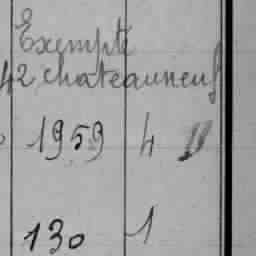 Exempté
42 chateauneuf
1959 4
130 1